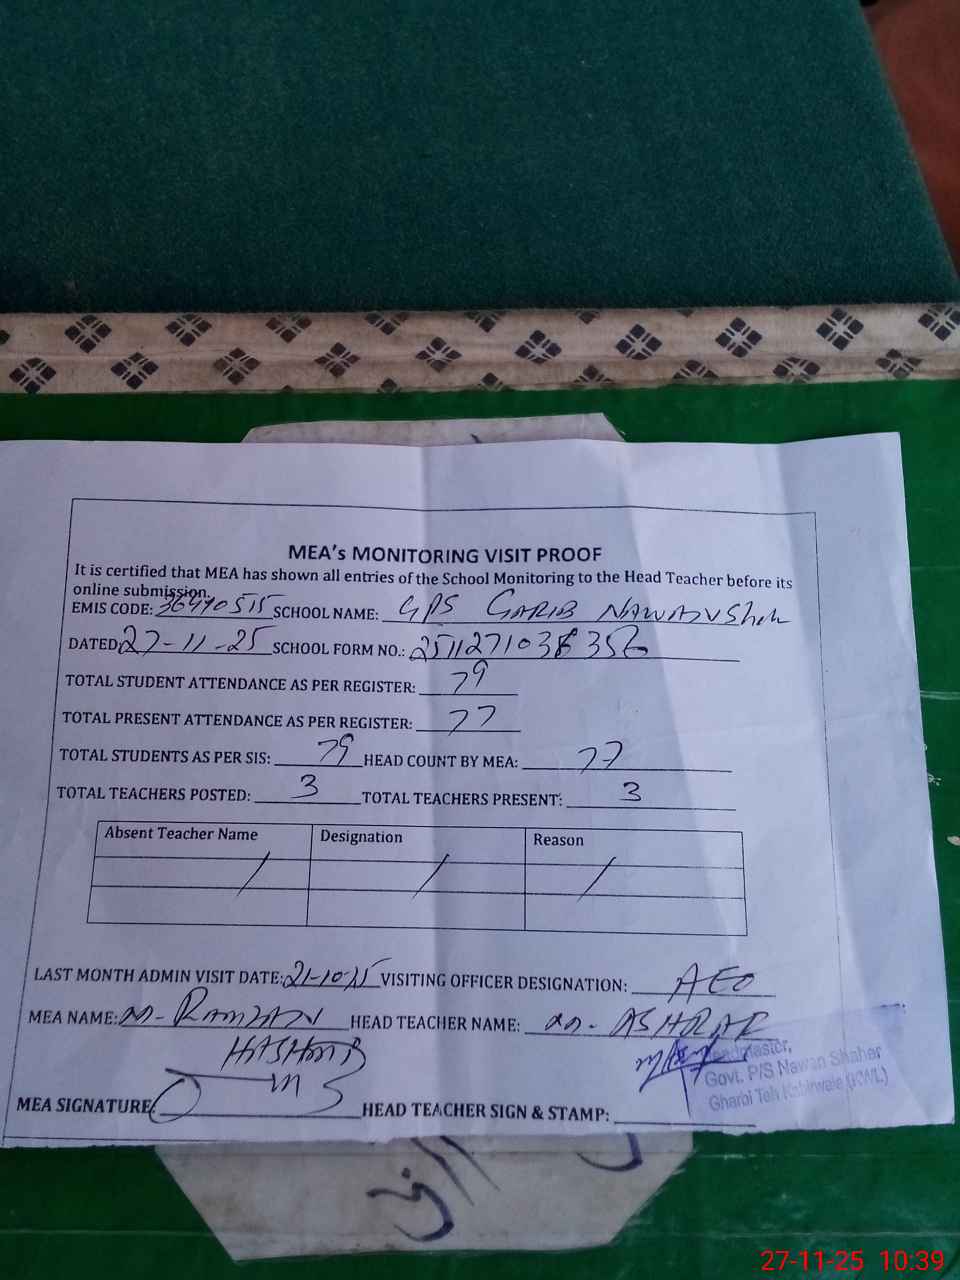 MEA's MONITORING VISIT PROOF
It is certified that MEA has shown all entries of the School Monitoring to the Head Teacher before its
online submission.
EMIS CODE: 36410515 SCHOOL NAME: GPS GARIB NAWAN Shehr
DATED: 27-11-25 SCHOOL FORM NO.: 251127103
TOTAL STUDENT ATTENDANCE AS PER REGISTER: 79
TOTAL PRESENT ATTENDANCE AS PER REGISTER: 77
TOTAL STUDENTS AS PER SIS: 79 HEAD COUNT BY MEA: 77
TOTAL TEACHERS POSTED: 3 TOTAL TEACHERS PRESENT: 3
Absent Teacher Name Designation Reason
LAST MONTH ADMIN VISIT DATE: 21-10-25 VISITING OFFICER DESIGNATION: AEO
MEA NAME: M-RAMZAN HEAD TEACHER NAME: M-ASHRAF
HASHMI
Headmaster,
Govt. P/S Nawan Shaher
Gharbi Teh Kabirwala (KWL)
MEA SIGNATURE HEAD TEACHER SIGN & STAMP:
27-11-25 10:39